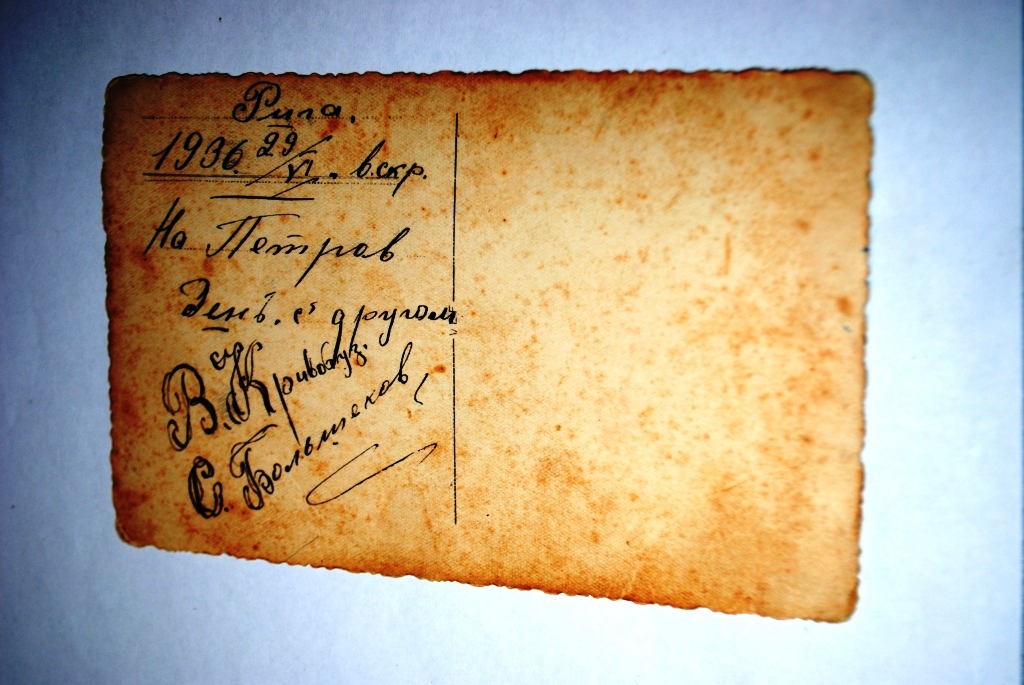 Рига.
1936. 29/VI. вскр.
На Петров
день. с другом
В. Кривобуз.
С. Большеков